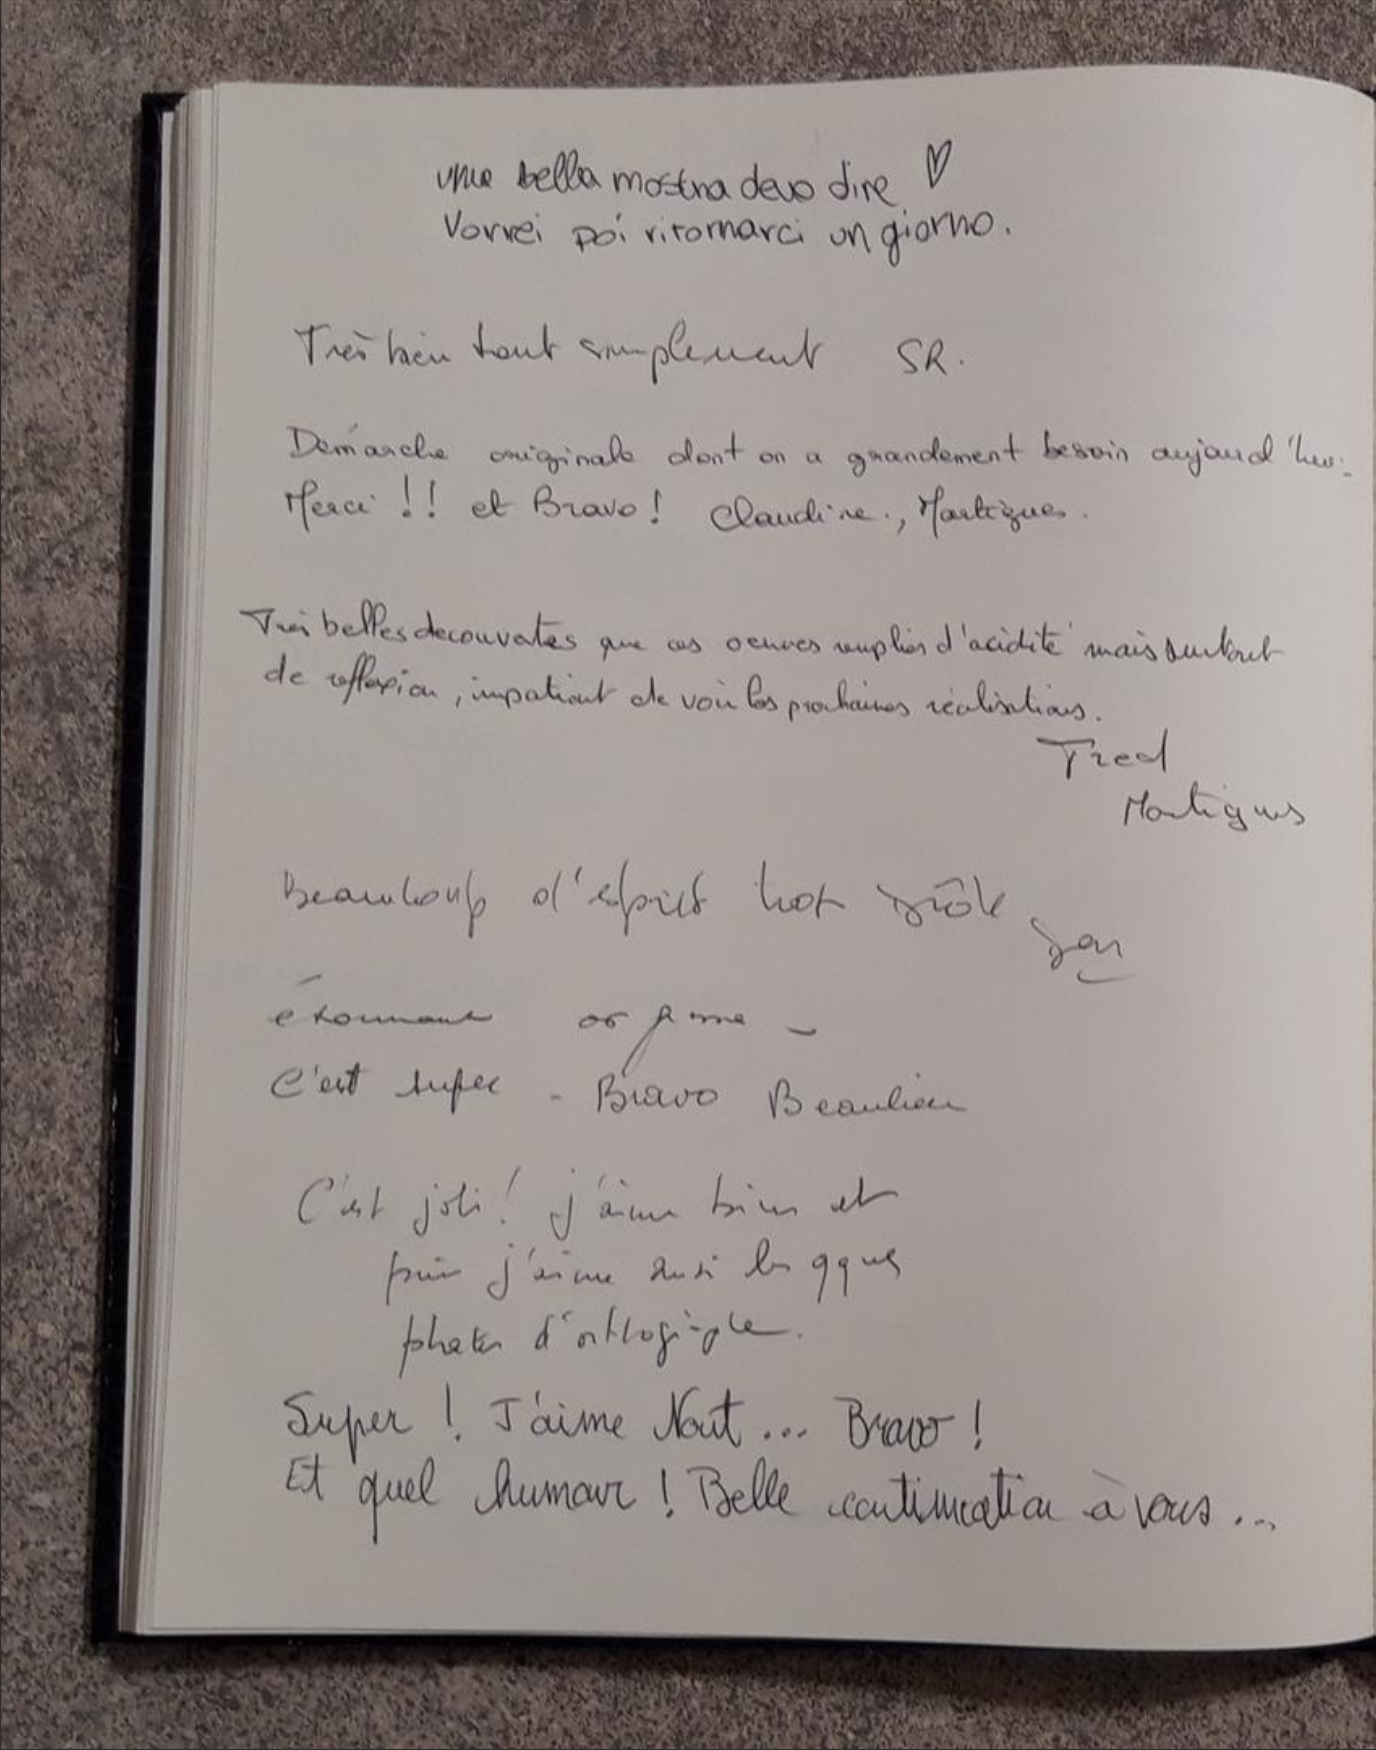 una bella mostra devo dire ♡
Vorrei poi ritornarci un giorno.
Très bien tout simplement SR.
Démarche originale dont on a grandement besoin aujourd'hui.
Merci !! et Bravo ! Claudine., Martigues.
Très belles decouvertes que ces oeuvres remplies d'acidité mais surtout
de reflexion, impatient de voir les prochaines réalisations.
Fred
Martigues
Beaucoup d'esprit drôle
étonnant
C'est super - Bravo Beaulieu
C'est joli ! j'aime bien et
puis j'aime aussi les qques
photos
Super ! J'aime tout ... Bravo !
Et quel humour ! Belle continuation à vous ...